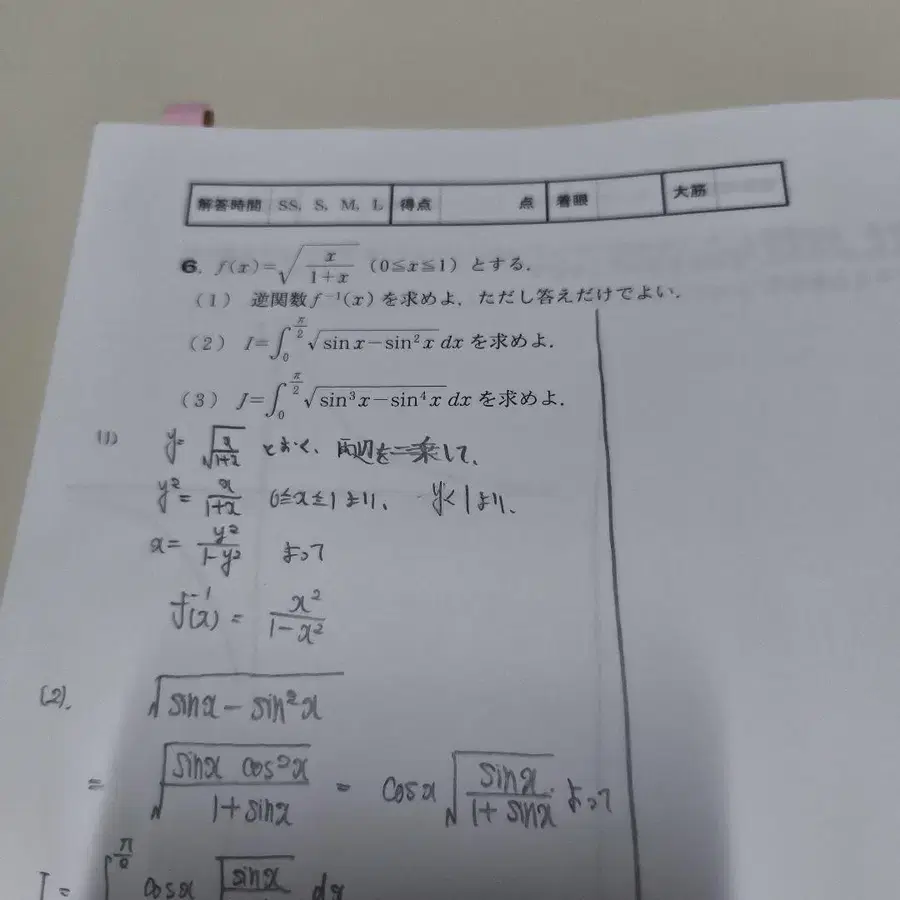 解答時間 SS, S, M, L 得点 点 着眼 大筋
6. f(x)=√(x/(1+x)) (0≦x≦1) とする.
(1) 逆関数 f⁻¹(x) を求めよ. ただし答えだけでよい.
(2) I=∫₀^(π/2) √(sin x−sin²x) dx を求めよ.
(3) J=∫₀^(π/2) √(sin³x−sin⁴x) dx を求めよ.
(1) y=√(x/(1+x)) とおく、両辺を二乗して、
y²=x/(1+x) 0≦x≦1より、 y<1より、
x=y²/(1-y²) よって
f⁻¹(x)=x²/(1-x²)
(2). √(sinx-sin²x)
=√(sinx cos²x/(1+sinx)) = cosx√(sinx/(1+sinx)) よって
I=∫^(π/2) cosx √(sinx/ dx